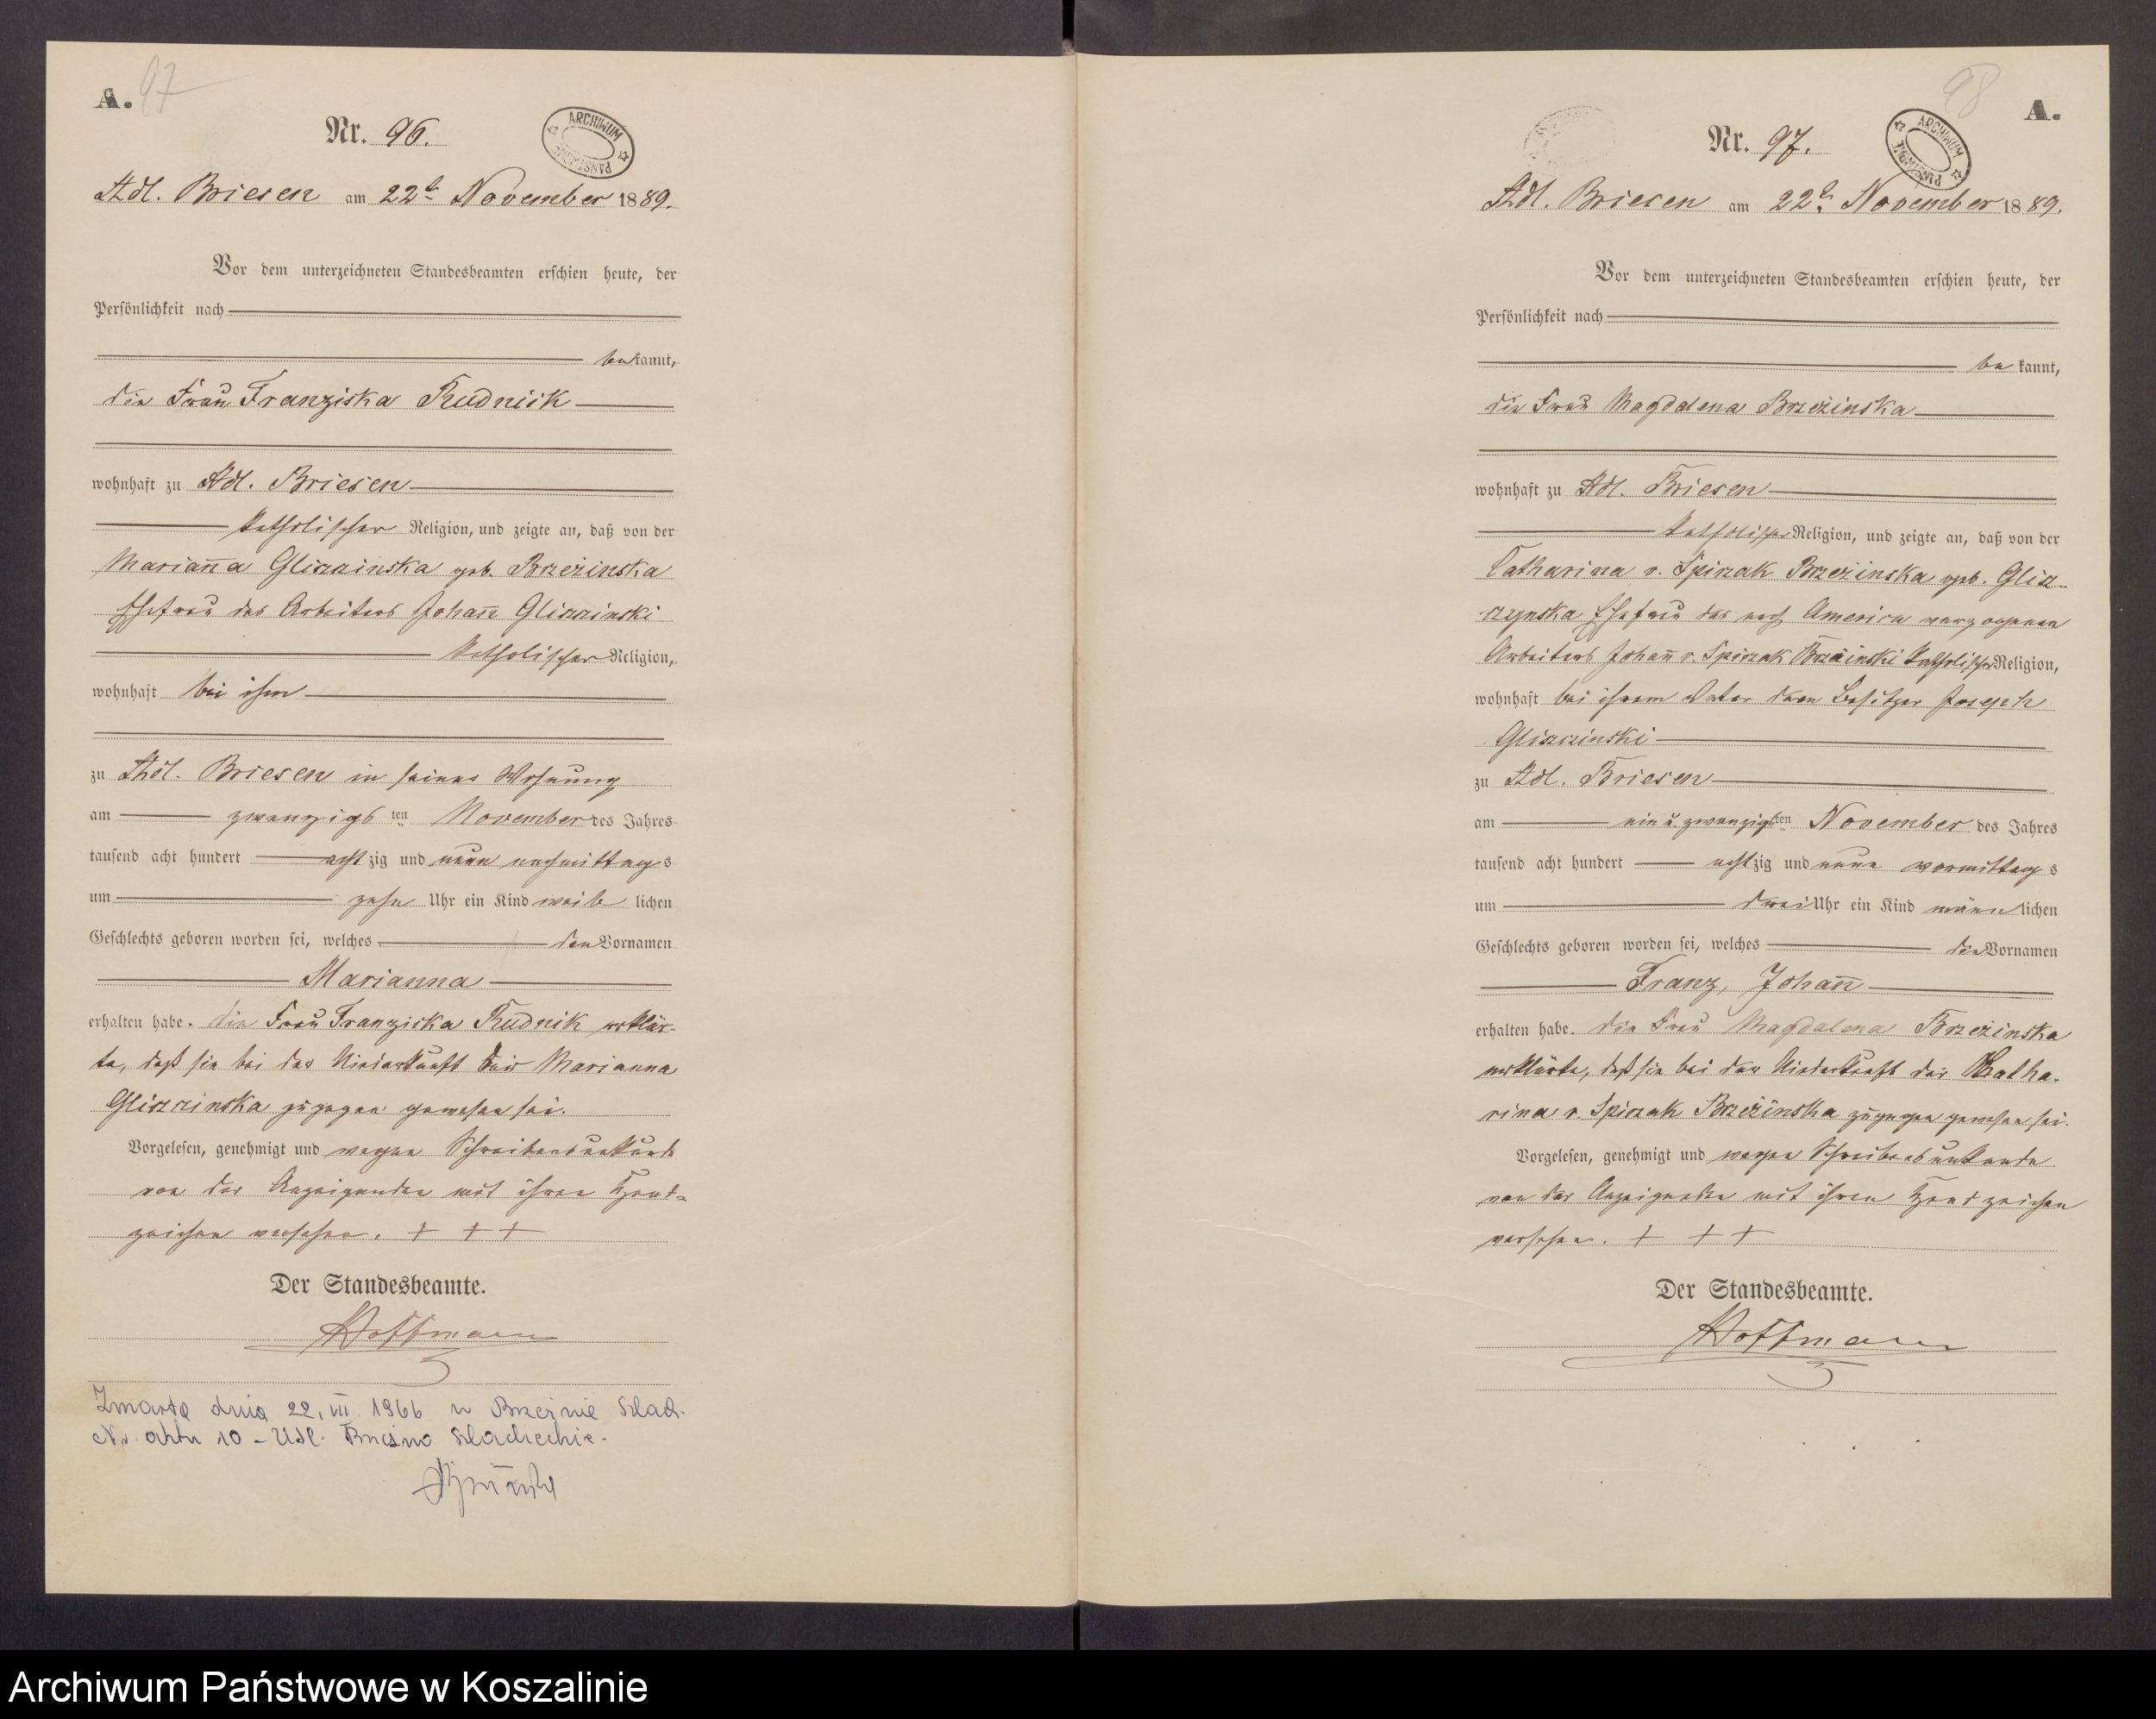 A.
97
Nr. 96.
ARCHIWUM PAŃSTWOWE
Adl. Briesen am 22t. November 1889.
Vor dem unterzeichneten Standesbeamten erschien heute, der
Persönlichkeit nach
bekannt,
die Frau Franziska Rudnick
wohnhaft zu Adl. Briesen
katholischer Religion, und zeigte an, daß von der
Marian̅a Gliszzinska geb. Brzezinska
Ehefrau des Arbeiters Johan̅ Gliszzinski
katholischer Religion,
wohnhaft bei ihm
zu Adl. Briesen in seiner Wohnung
am zwanzigsten November des Jahres
tausend acht hundert achtzig und neun nachmittags
um zehn Uhr ein Kind weiblichen
Geschlechts geboren worden sei, welches den Vornamen
Marianna
erhalten habe. die Frau Franziska Rudnik erklär-
te, daß sie bei der Niederkunft der Marianna
Gliszzinska zugegen gewesen sei.
Vorgelesen, genehmigt und wegen Schreibensunkunde
von der Anzeigenden mit ihren Hand-
zeichen versehen. + + +
Der Standesbeamte.
Hoffmann
Zmarła dnia 22. III. 1966 w Brzeźnie Szlach.
Nr. aktu 10 - USC. Brzeźno Szlacheckie.
98
A.
Nr. 97.
ARCHIWUM PAŃSTWOWE
Adl. Briesen am 22t. November 1889.
Vor dem unterzeichneten Standesbeamten erschien heute, der
Persönlichkeit nach
bekannt,
die Frau Magdalena Brzezinska
wohnhaft zu Adl. Briesen
katholischer Religion, und zeigte an, daß von der
Catharina v. Spiczak Brzezinska geb. Glisz-
czynska Ehefrau des nach America verzogenen
Arbeiters Johan̅ v. Spiczak Brzezinski katholischer Religion,
wohnhaft bei ihrem Vater dem Besitzer Joseph
Gliszczinski
zu Adl. Briesen
am ein u. zwanzigsten November des Jahres
tausend acht hundert achtzig und neun vormittags
um drei Uhr ein Kind männlichen
Geschlechts geboren worden sei, welches die Vornamen
Franz, Johan̅
erhalten habe. die Frau Magdalena Brzezinska
erklärte, daß sie bei der Niederkunft der Katha-
rina v. Spiczak Brzezinska zugegen gewesen sei.
Vorgelesen, genehmigt und wegen Schreibensunkunde
von der Anzeigenden mit ihren Handzeichen
versehen. + + +
Der Standesbeamte.
Hoffmann
Archiwum Państwowe w Koszalinie